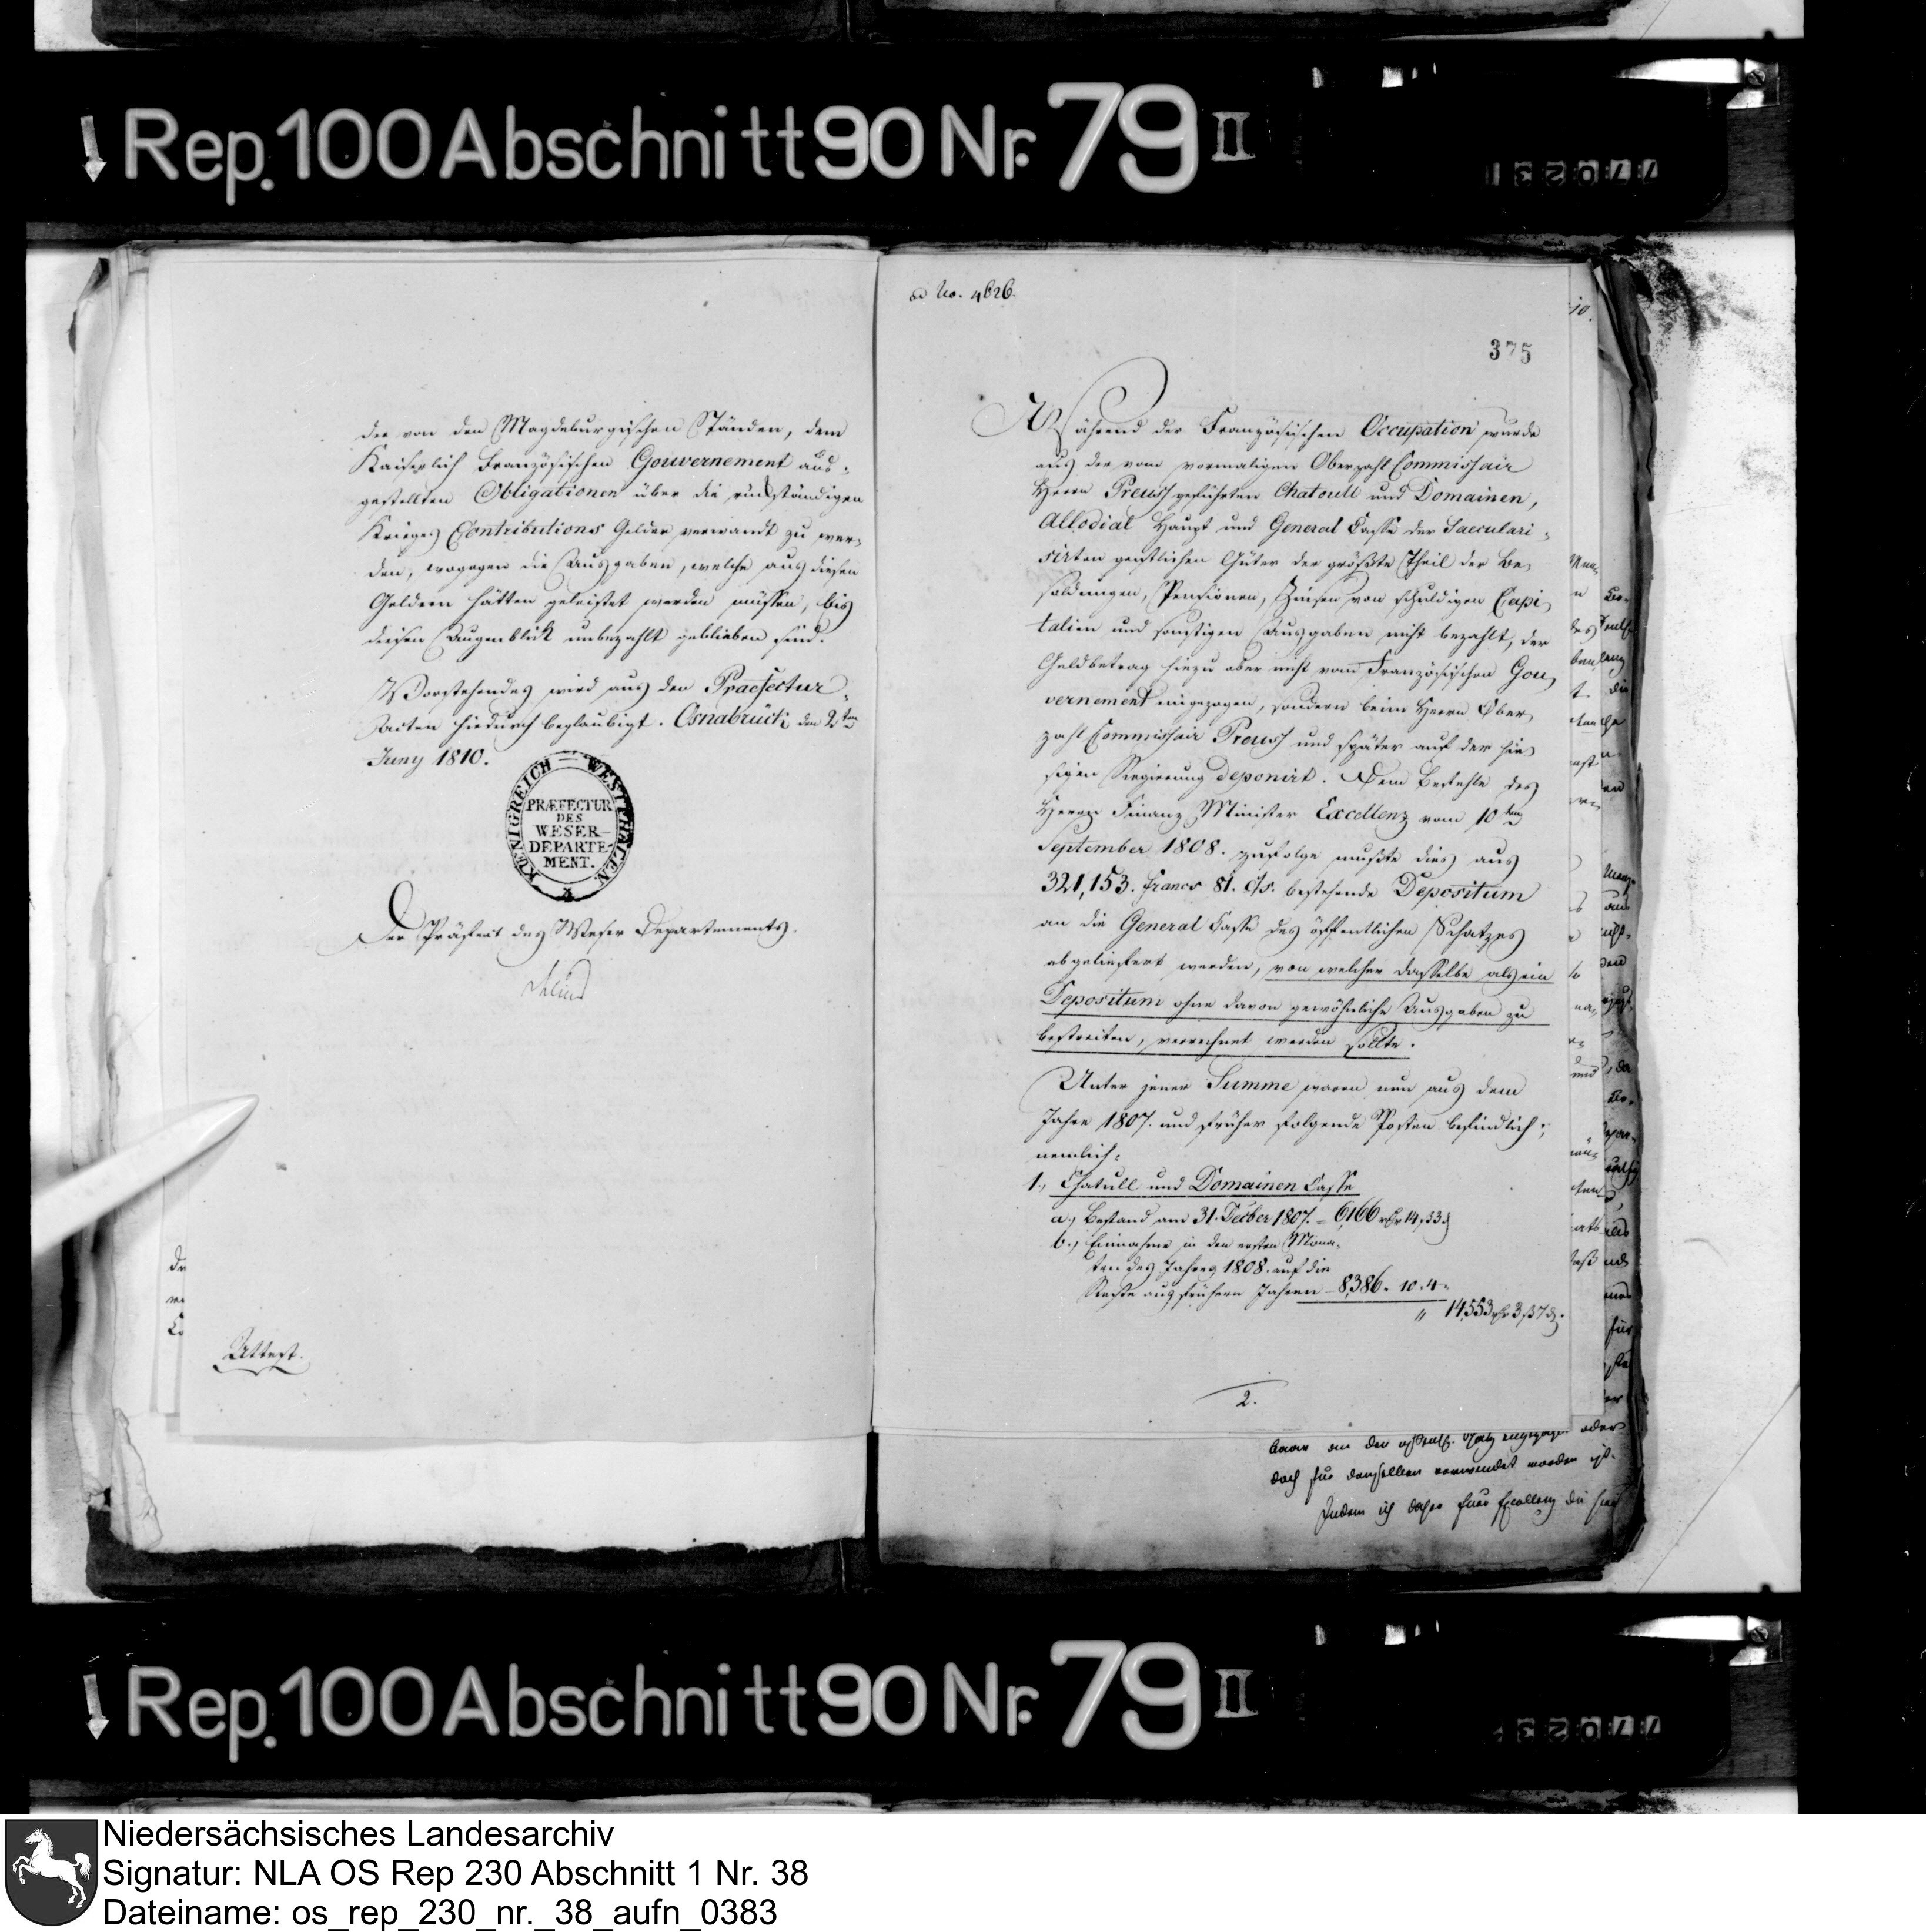 Rep. 100 Abschnitt 90 Nr. 79 II
770231
der von den Magdeburgischen Ständen, dem
Kaiserlich Französischen Gouvernement aus-
gestellten Obligationen über die rückständigen
Krieges Contributions Gelder verwandt zu wer-
den, wogegen die Ausgaben, welche aus diesen
Geldern hätten geleistet werden müssen, bis
diesen Augenblick unbezahlt geblieben sind.
Vorstehendes wird aus den Praefectur-
Acten hiedurch beglaubigt. Osnabrück den 2ten
Juny 1810.
KÖNIGREICH WESTPHALEN
PRÆFECTUR
DES
WESER-
DEPARTE-
MENT.
Der Präfect des Weser Departements.
Attest.
ad No. 4626.
375
Während der Französischen Occupation wurde
aus der vom vormaligen Oberzahl Commissair
Herrn Preuss geführten Chatoull und Domainen,
Allodial Haupt und General Casse der Saeculari-
sirten geistlichen Güter der größte Theil der Be-
soldungen, Pensionen, Zinsen von schuldigen Capi-
talien und sonstigen Ausgaben nicht bezahlt, der
Geldbetrag hiezu aber nicht vom Französischen Gou-
vernement eingezogen, sondern beim Herrn Ober-
zahl Commissair Preuss und später auf der hie-
sigen Regierung deponirt. Dem Befehle des
Herrn Finanz Minister Excellenz vom 10ten
September 1808. zufolge mußte dies aus
321,153. francs 81. cts. bestehende Depositum
an die General Casse des öffentlichen Schatzes
abgeliefert werden, von welcher dasselbe als ein
Depositum ohne davon gewöhnliche Ausgaben zu
bestreiten, verrechnet werden sollte.
Unter jener Summe waren nun aus dem
Jahre 1807. und früher folgende Posten befindlich;
nemlich:
1., Chatull und Domainen Casse
a., Bestand am 31. Decber 1807. = 6,166 rthr 14, 33
b., Einnahme in den ersten Mona-
ten des Jahres 1808. auf die
Reste aus frühern Jahren - 8,386. 10. 4.
" 14,553 rthr 3, 37
2.
baar an den öffentl. Schatz eingezogen oder
doch für denselben verwendet worden ist.
Indem ich daher Euer Excellenz die
Rep. 100 Abschnitt 90 Nr. 79 II
Niedersächsisches Landesarchiv
Signatur: NLA OS Rep 230 Abschnitt 1 Nr. 38
Dateiname: os_rep_230_nr._38_aufn_0383